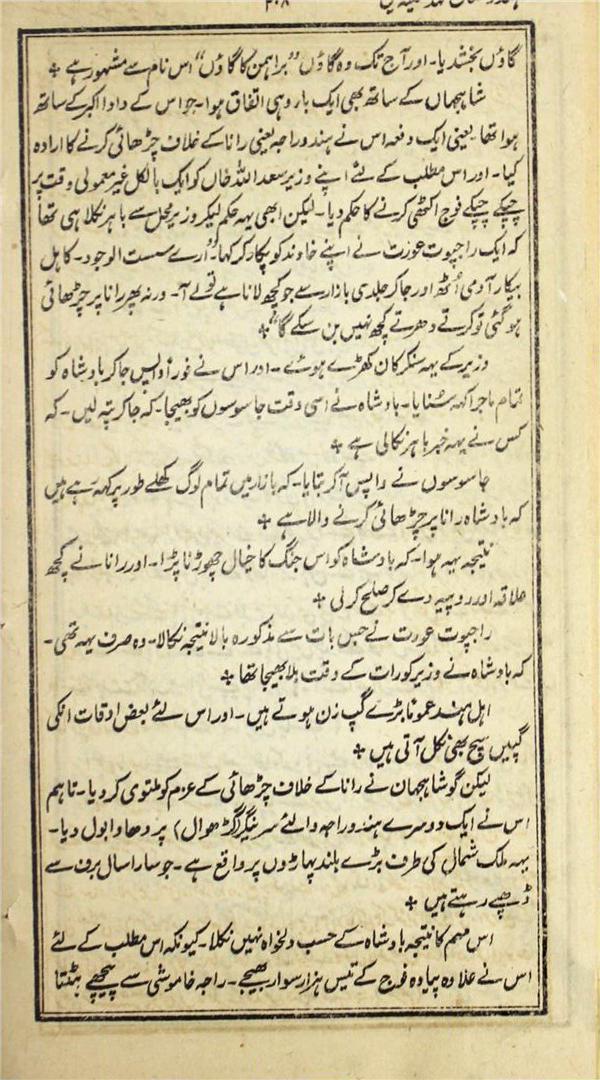 ۲۰۸
گاؤں بخشدیا۔ اور آج تک وہ گاؤں "براہمن کا گاؤں" اس نام سے مشہور ہے +
شاہجہاں کے ساتھ بھی ایک بار وہی اتفاق ہوا۔ جو اس کے دادا اکبر کے ساتھ
ہوا تھا۔ یعنی ایک دفعہ اس نے ہندو راجہ یعنی رانا کے خلاف چڑھائی کرنے کا ارادہ
کیا۔ اور اس مطلب کے لئے اپنے وزیر سعد اللہ خاں کو ایک بالکل غیر معمولی وقت پر
چپکے چپکے فوج اکٹھی کرنے کا حکم دیا۔ لیکن ابھی یہہ حکم لیکر وزیر محل سے باہر نکلا ہی تھا
کہ ایک راجپوت عورت نے اپنے خاوند کو پکار کر کہا "ارے سست الوجود۔ کاہل
بیکار آدمی اُٹھ اور جا کر جلدی بازار سے جو کچھ لانا ہے تو لے آ۔ ورنہ پھر رانا پر چڑھائی
ہو گئی تو کرتے دھرتے کچھ نہیں بن سکے گا" +
وزیر کے یہہ سنکر کان کھڑے ہوئے۔ اور اس نے فوراً واپس جا کر بادشاہ کو
تمام ماجرا کہہ سُنایا۔ بادشاہ نے اسی وقت جاسوسوں کو بھیجا۔ کہ جا کر پتہ لیں۔ کہ
کس نے یہہ خبر باہر نکالی ہے +
جاسوسوں نے واپس آ کر بتایا۔ کہ بازار میں تمام لوگ کھلے طور پر کہہ رہے ہیں
کہ بادشاہ رانا پر چڑھائی کرنے والا ہے +
نتیجہ یہہ ہوا۔ کہ بادشاہ کو اس جنگ کا خیال چھوڑنا پڑا۔ اور رانا نے کچھ
علاقہ اور روپیہ دے کر صلح کر لی +
راجپوت عورت نے جس بات سے مذکورہ بالا نتیجہ نکالا۔ وہ صرف یہہ تھی۔
کہ بادشاہ نے وزیر کو رات کے وقت بلا بھیجا تھا +
اہل ہند عموماً بڑے گپ زن ہوتے ہیں۔ اور اس لئے بعض اوقات انکی
گپیں سچ بھی نکل آتی ہیں +
لیکن گو شاہجہان نے رانا کے خلاف چڑھائی کے عزم کو ملتوی کر دیا۔ تاہم
اس نے ایک دوسرے ہندو راجہ والئے سرینگر (گڑھوال) پر دھاوا بول دیا۔
یہہ ملک شمال کی طرف بڑے بلند پہاڑوں پر واقع ہے۔ جو سارا سال برف سے
ڈھپے رہتے ہیں +
اس مہم کا نتیجہ بادشاہ کے حسب دلخواہ نہیں نکلا۔ کیونکہ اس مطلب کے لئے
اس نے علاوہ پیادہ فوج کے تیس ہزار سوار بھیجے۔ راجہ خاموشی سے پیچھے ہٹتا